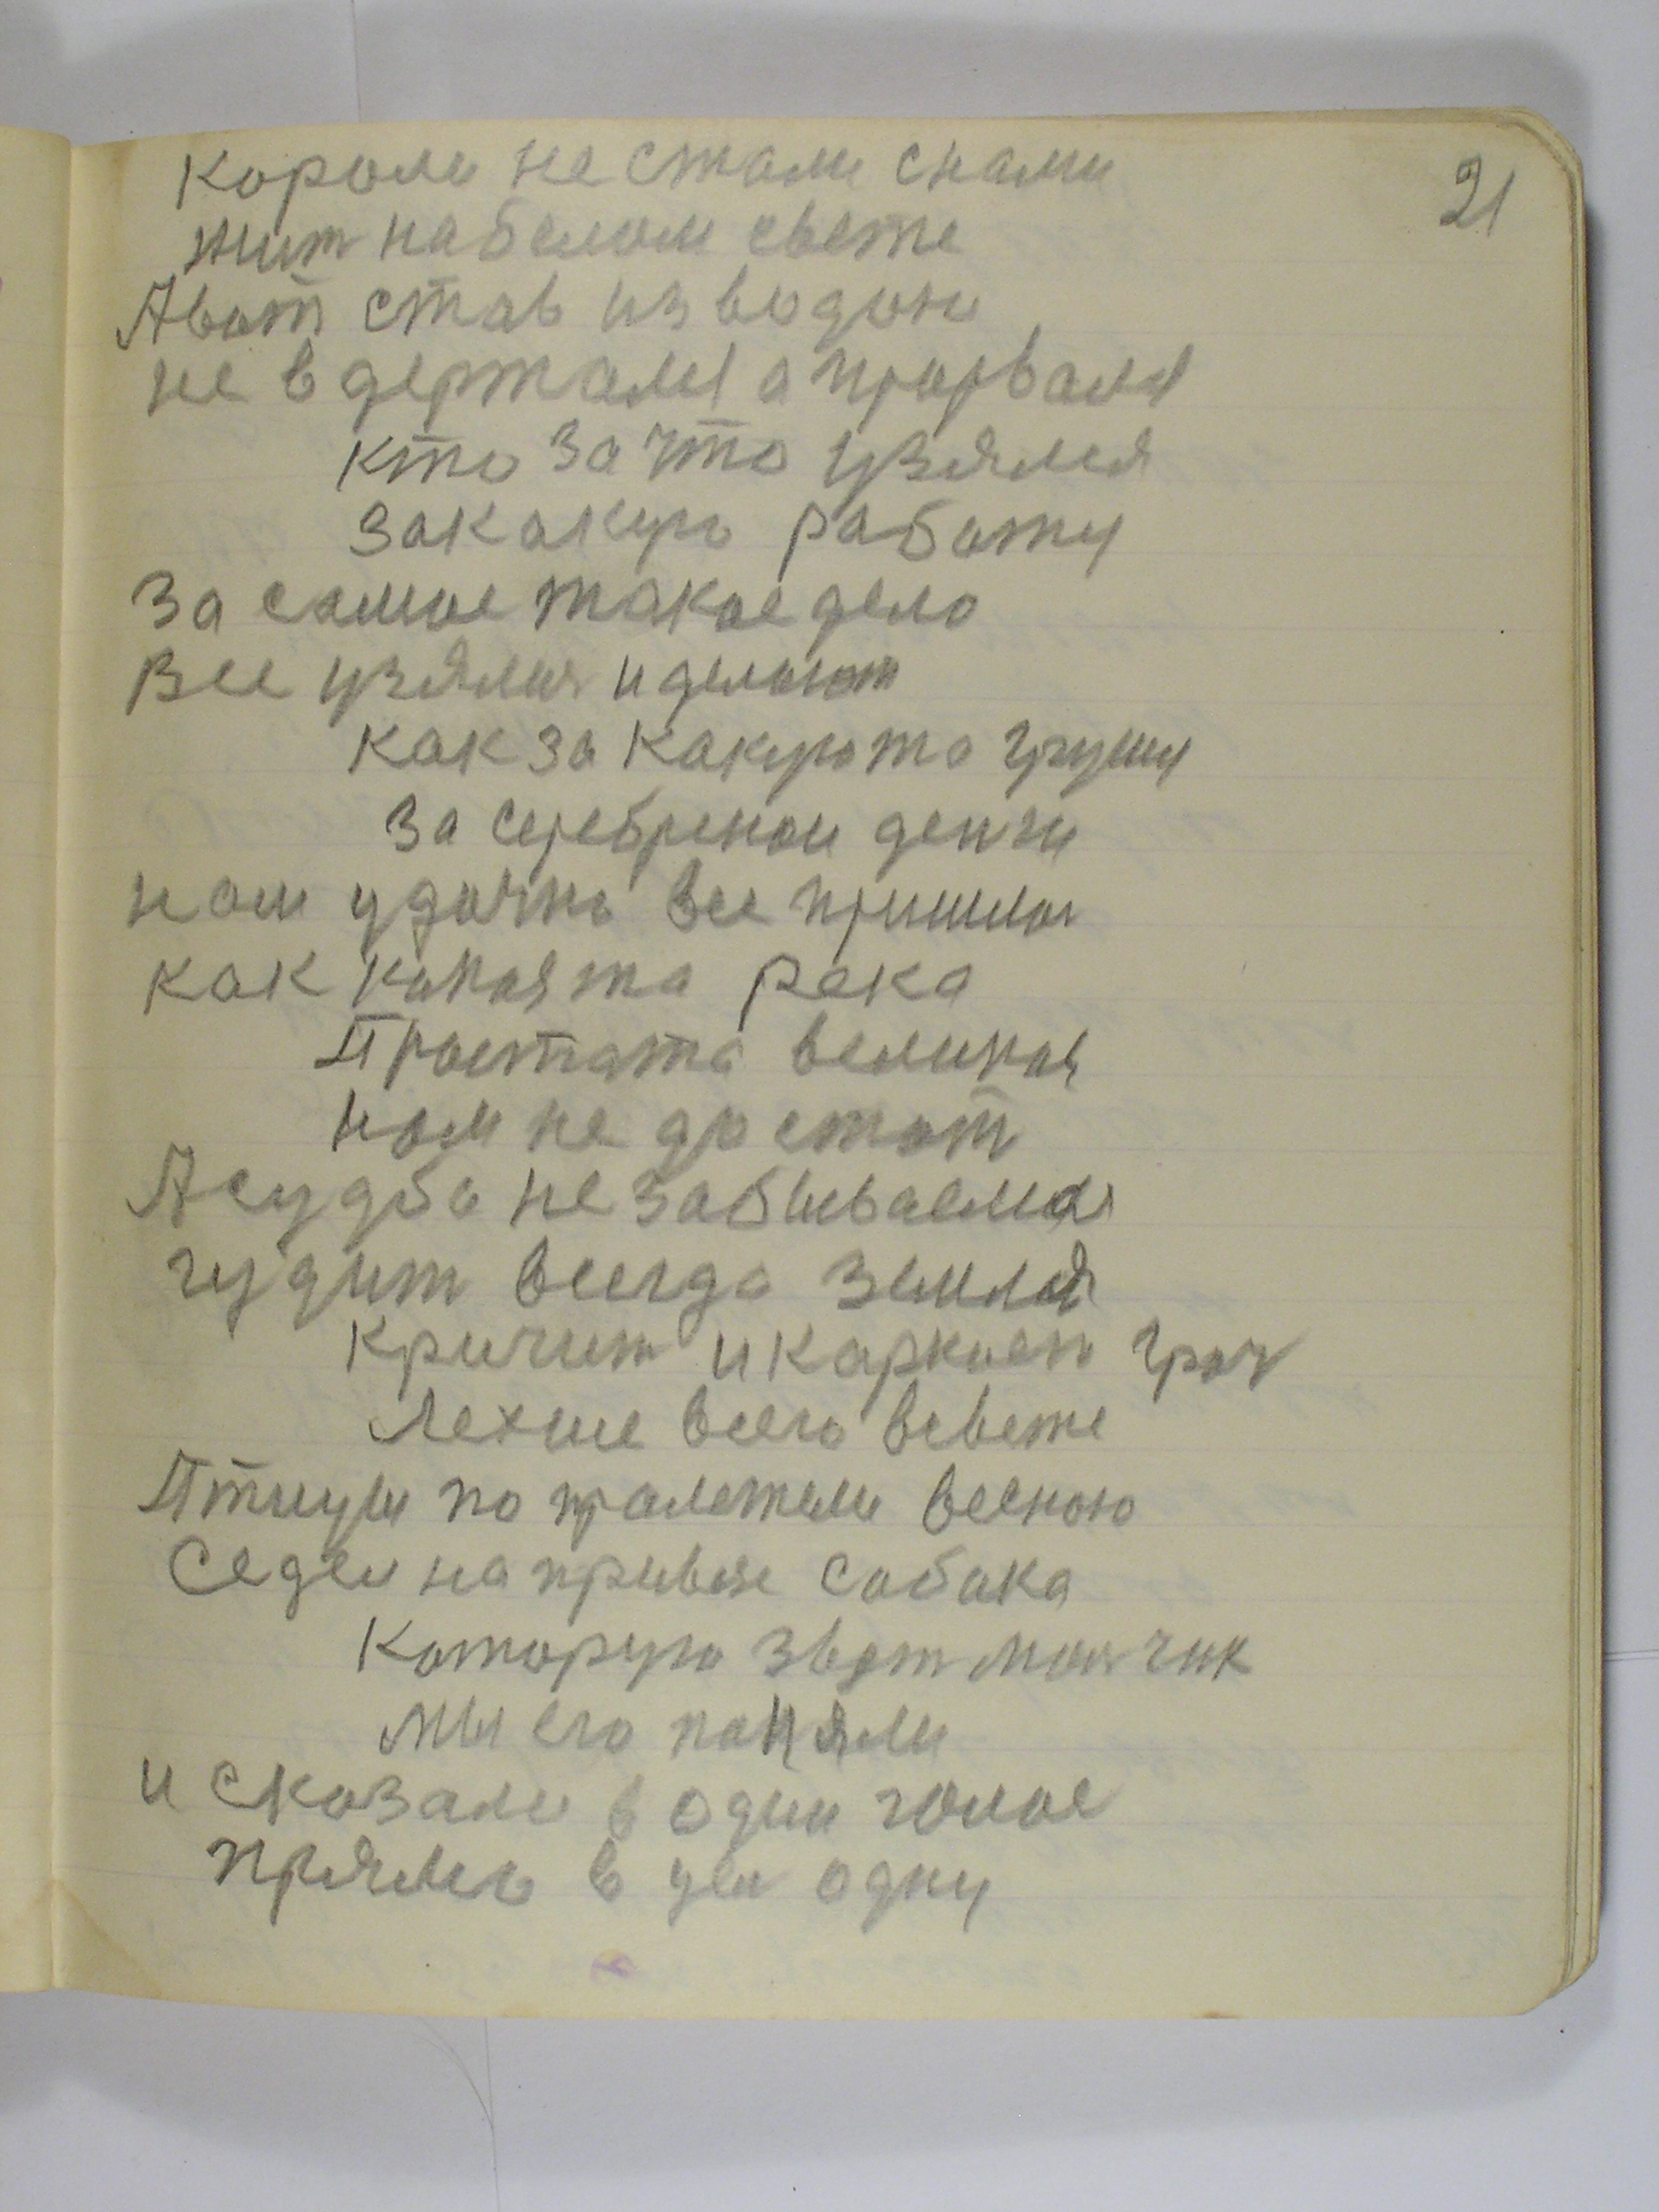 21
Короли не стали снами
жит на белом свете
А вот став из водои
не вдержал и а прорвался
кто за что узялся
за какую работу
За самое такое дело
Все узялися и делают
как за какуюто грушу
За серебреной денги
нам удачно все пришлося
как какаята река
Простата великая
нам не достат
А судба не забываемая
гудит всегда земля
Кричит и каркает грач
Лехше всего всвете
Птицы по пралетели весною
Седел на привязе собака
Которую звот
Мы его поняли
и сказали в один голос
прямо в одну